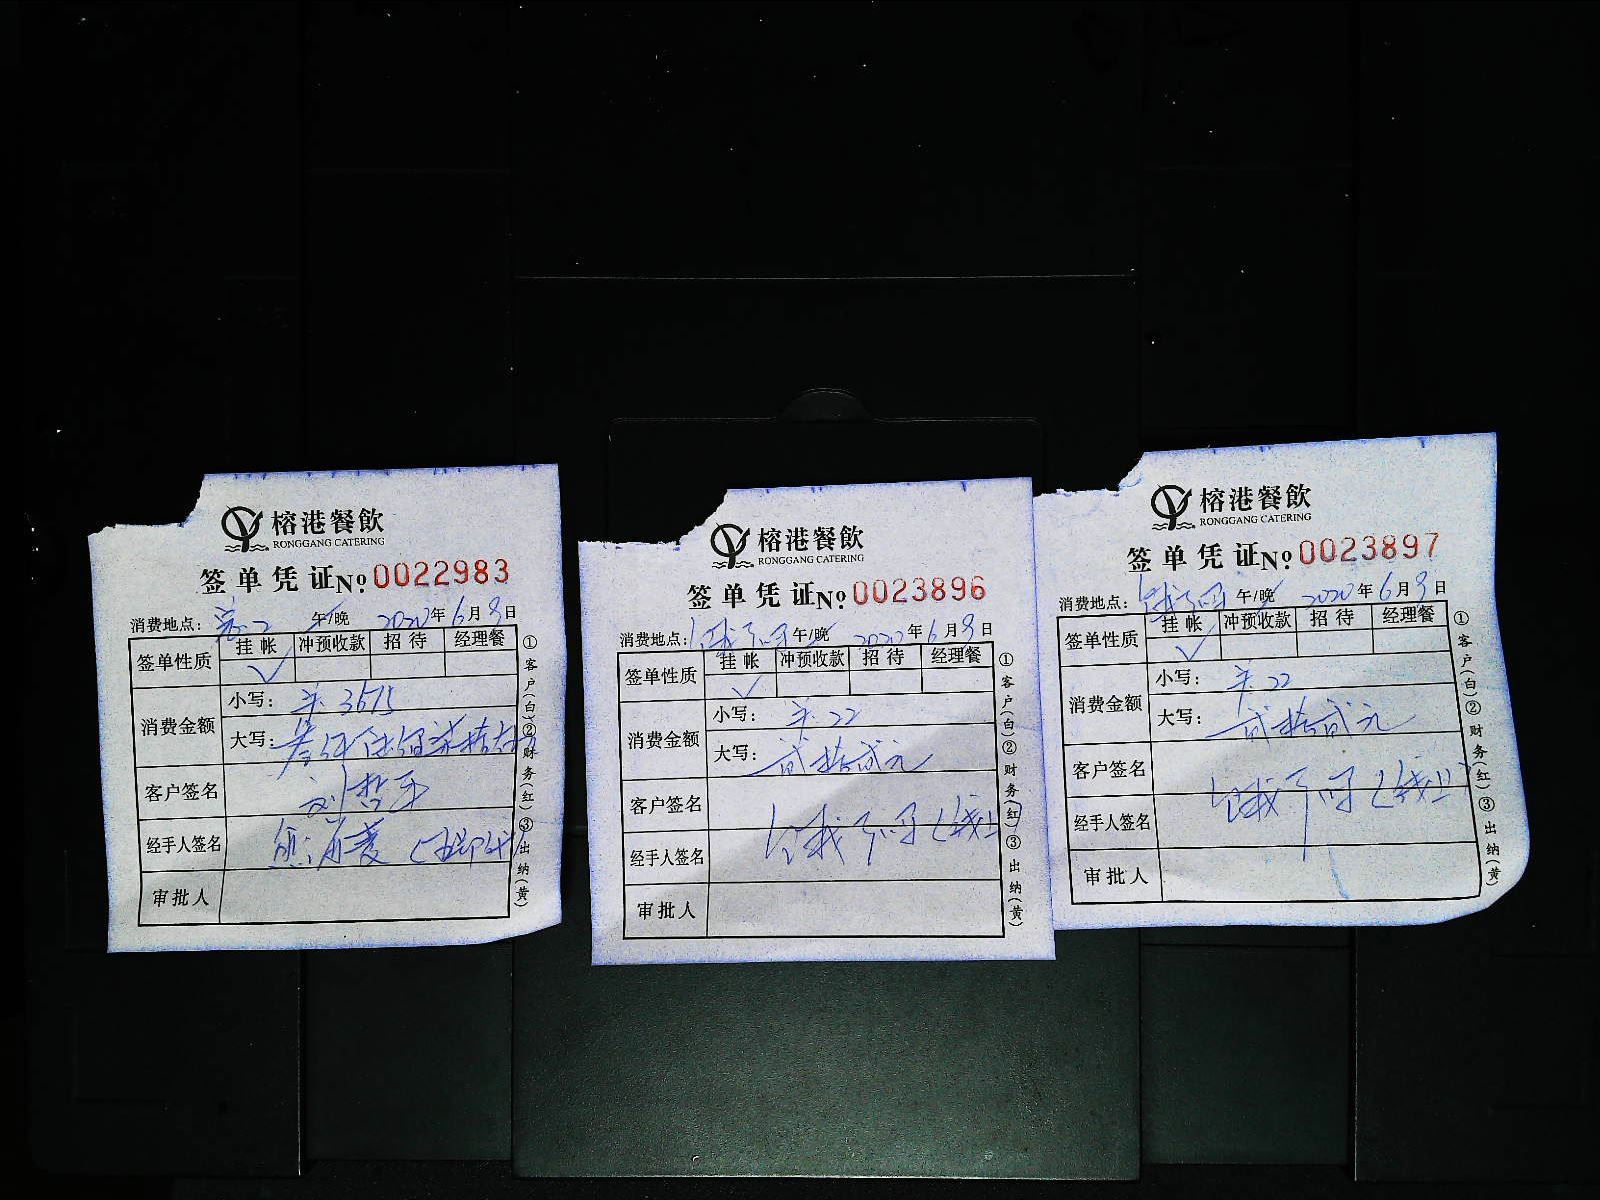 榕港餐飲
RONGGANG CATERING
签单凭证 No. 0022983
消费地点: 午/晚 2020年6月9日
签单性质 挂帐 冲预收款 招待 经理餐
√
消费金额 小写: 3675
大写: 叁仟陆佰柒拾
客户签名
经手人签名
审批人
①客户(白)②财务(红)③出纳(黄)
榕港餐飲
RONGGANG CATERING
签单凭证 No. 0023896
消费地点: 饿了吗 午/晚 2020年6月9日
签单性质 挂帐 冲预收款 招待 经理餐
√
消费金额 小写: 22
大写: 贰拾贰元
客户签名
经手人签名 饿了吗(线上)
审批人
①客户(白)②财务(红)③出纳(黄)
榕港餐飲
RONGGANG CATERING
签单凭证 No. 0023897
消费地点: 饿了吗 午/晚 2020年6月9日
签单性质 挂帐 冲预收款 招待 经理餐
√
消费金额 小写: 22
大写: 贰拾贰元
客户签名 饿了吗(线上)
经手人签名
审批人
①客户(白)②财务(红)③出纳(黄)